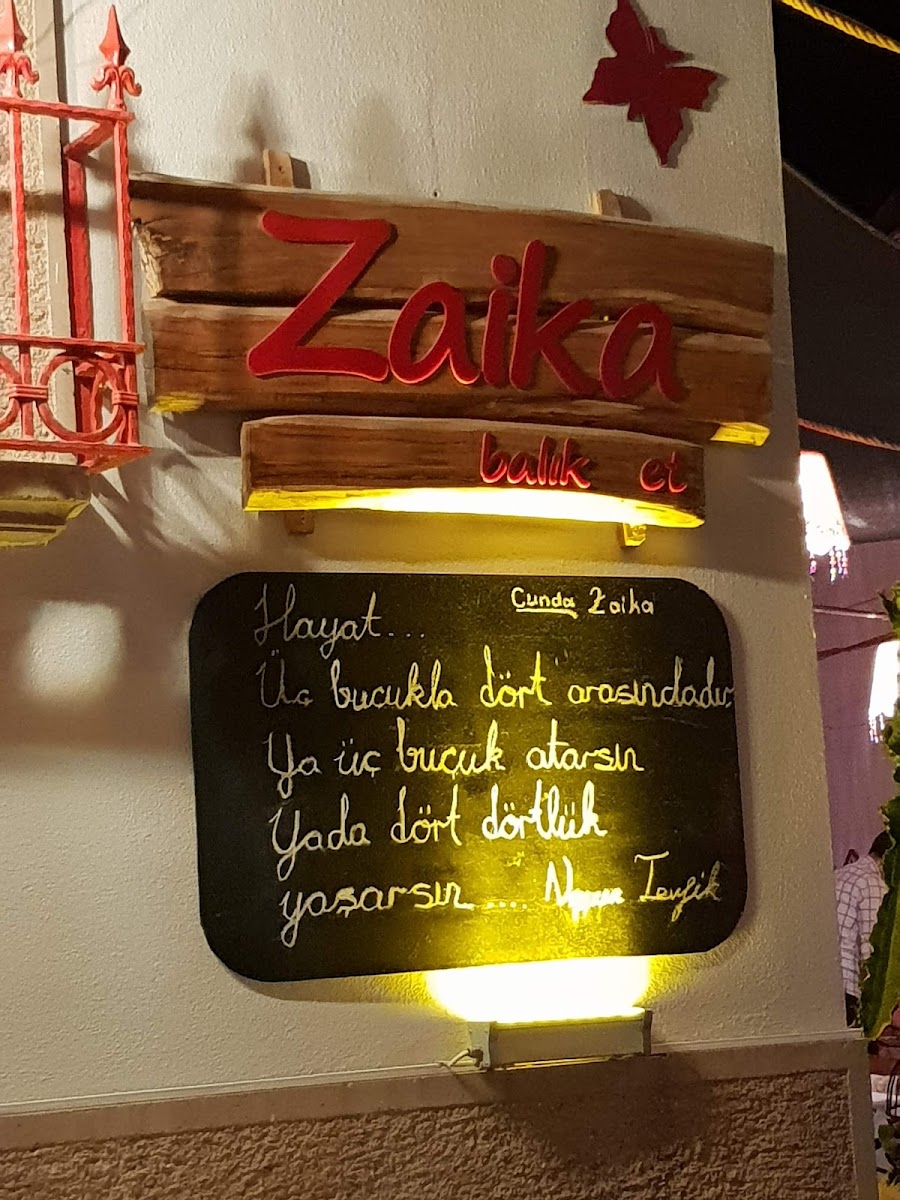 Zaika
balık et
Cunda Zaika
Hayat...
Üç buçukla dört arasındadır.
Ya üç buçuk atarsın
Yada dört dörtlük
yaşarsın.... Tevfik